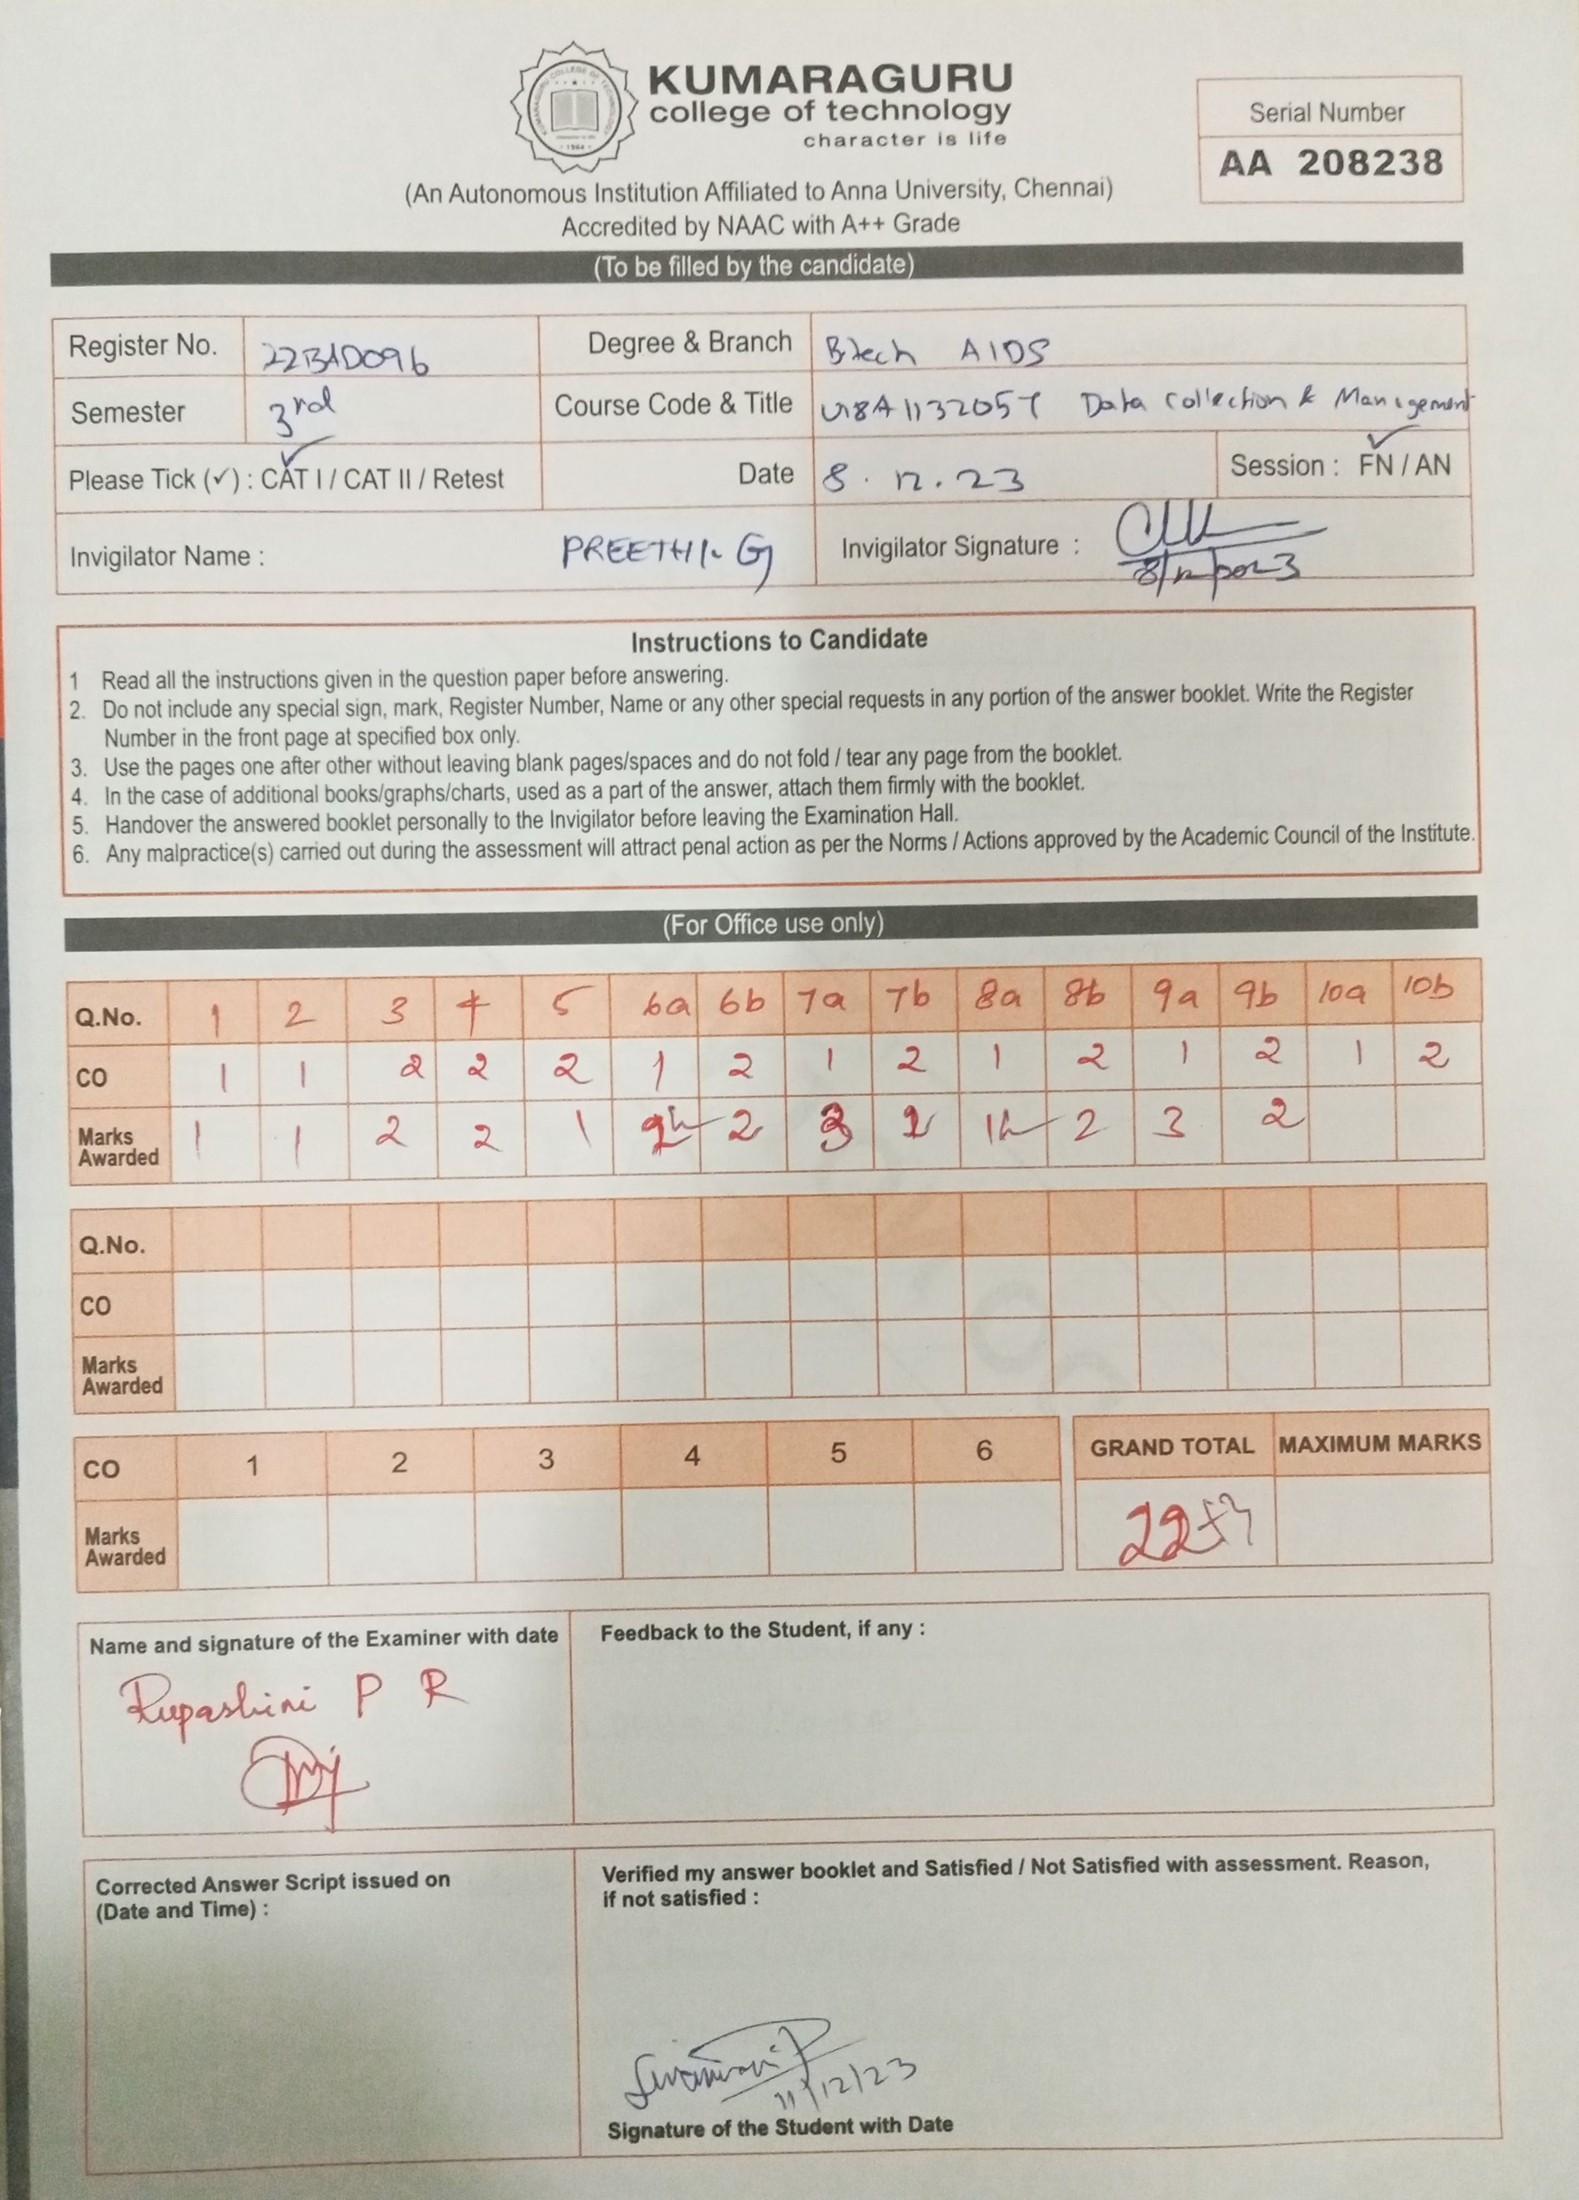 KUMARAGURU
college of technology
character is life
KUMARAGURU COLLEGE OF TECHNOLOGY
1984
Serial Number
AA 208238
(An Autonomous Institution Affiliated to Anna University, Chennai)
Accredited by NAAC with A++ Grade
(To be filled by the candidate)
Register No. 22BAD096 Degree & Branch Btech AIDS
Semester 3rd Course Code & Title Data Collection & Management
Please Tick (✓) : CAT I / CAT II / Retest Date 8.12.23 Session : FN / AN
Invigilator Name : PREETHI. G Invigilator Signature : 8/12/2023
Instructions to Candidate
1 Read all the instructions given in the question paper before answering.
2. Do not include any special sign, mark, Register Number, Name or any other special requests in any portion of the answer booklet. Write the Register
Number in the front page at specified box only.
3. Use the pages one after other without leaving blank pages/spaces and do not fold / tear any page from the booklet.
4. In the case of additional books/graphs/charts, used as a part of the answer, attach them firmly with the booklet.
5. Handover the answered booklet personally to the Invigilator before leaving the Examination Hall.
6. Any malpractice(s) carried out during the assessment will attract penal action as per the Norms / Actions approved by the Academic Council of the Institute.
(For Office use only)
Q.No. 1 2 3 4 5 6a 6b 7a 7b 8a 8b 9a 9b 10a 10b
CO 1 1 2 2 2 1 2 1 2 1 2 1 2 1 2
Marks Awarded 1 1 2 2 1 2 3 2 3 2
Q.No.
CO
Marks Awarded
CO 1 2 3 4 5 6 GRAND TOTAL MAXIMUM MARKS
Marks Awarded
Name and signature of the Examiner with date
Rupashini P R
Feedback to the Student, if any :
Corrected Answer Script issued on
(Date and Time) :
Verified my answer booklet and Satisfied / Not Satisfied with assessment. Reason,
if not satisfied :
11/12/23
Signature of the Student with Date